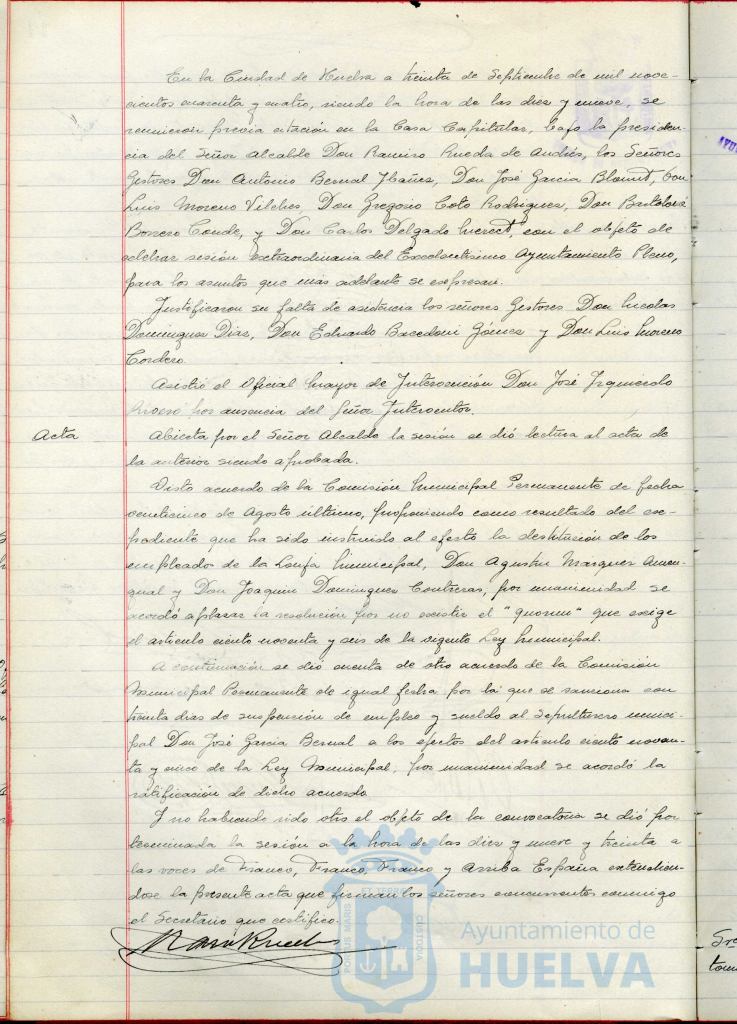 En la Ciudad de Huelva a treinta de Septiembre de mil nove-
cientos cuarenta y cuatro, siendo la hora de las diez y nueve, se
reunieron previa citación en la Casa Capitular, bajo la presiden-
cia del Señor Alcalde Don Ramiro Rueda de Andrés, los Señores
Gestores Don Antonio Bernal Ibañez, Don José Garcia Don
Luis Moreno Vilches, Don Gregorio Coto Rodriguez, Don Bartolomé
Borrero Conde, y Don Carlos Delgado con el objeto de
celebrar sesión extraordinaria del Excelentisimo Ayuntamiento Pleno,
para los asuntos que mas adelante se expresan.
Justificaron su falta de asistencia los señores Gestores Don Nicolas
Dominguez Diaz, Don Eduardo Gómez y Don Luis Moreno
Cordero.
Asistió el Oficial Mayor de Intervención Don José Izquierdo
por ausencia del Señor Interventor.
Acta
Abierta por el Señor Alcalde la sesión se dió lectura al acta de
la anterior siendo aprobada.
Visto acuerdo de la Comisión Municipal Permanente de fecha
veinticinco de Agosto último, proponiendo como resultado del ex-
pediente que ha sido instruido al efecto la destitución de los
empleado de la Lonja Municipal, Don Agustin Marquez Amen-
gual y Don Joaquin Dominguez Contreras, por unanimidad se
acordó aplazar la resolución por no existir el "quorum" que exige
el articulo ciento noventa y seis de la vigente Ley Municipal.
A continuación se dió cuenta de otro acuerdo de la Comisión
Municipal Permanente de igual fecha por la que se sanciona con
treinta dias de suspensión de empleo y sueldo al Sepulturero munici-
pal Don José Garcia Bernal a los efectos del articulo ciento noven-
ta y cinco de la Ley Municipal, por unanimidad se acordó la
ratificación de dicho acuerdo.
Y no habiendo sido otro el objeto de la convocatoria se dió por
terminada la sesión a la hora de las diez y nueve y treinta a
las voces de Franco, Franco, Franco y Arriba España extendien-
dose la presente acta que firman los señores concurrentes conmigo
el Secretario que certifico.
PORTUS MARIS ET TERRAE CUSTODIA
Ayuntamiento de
HUELVA